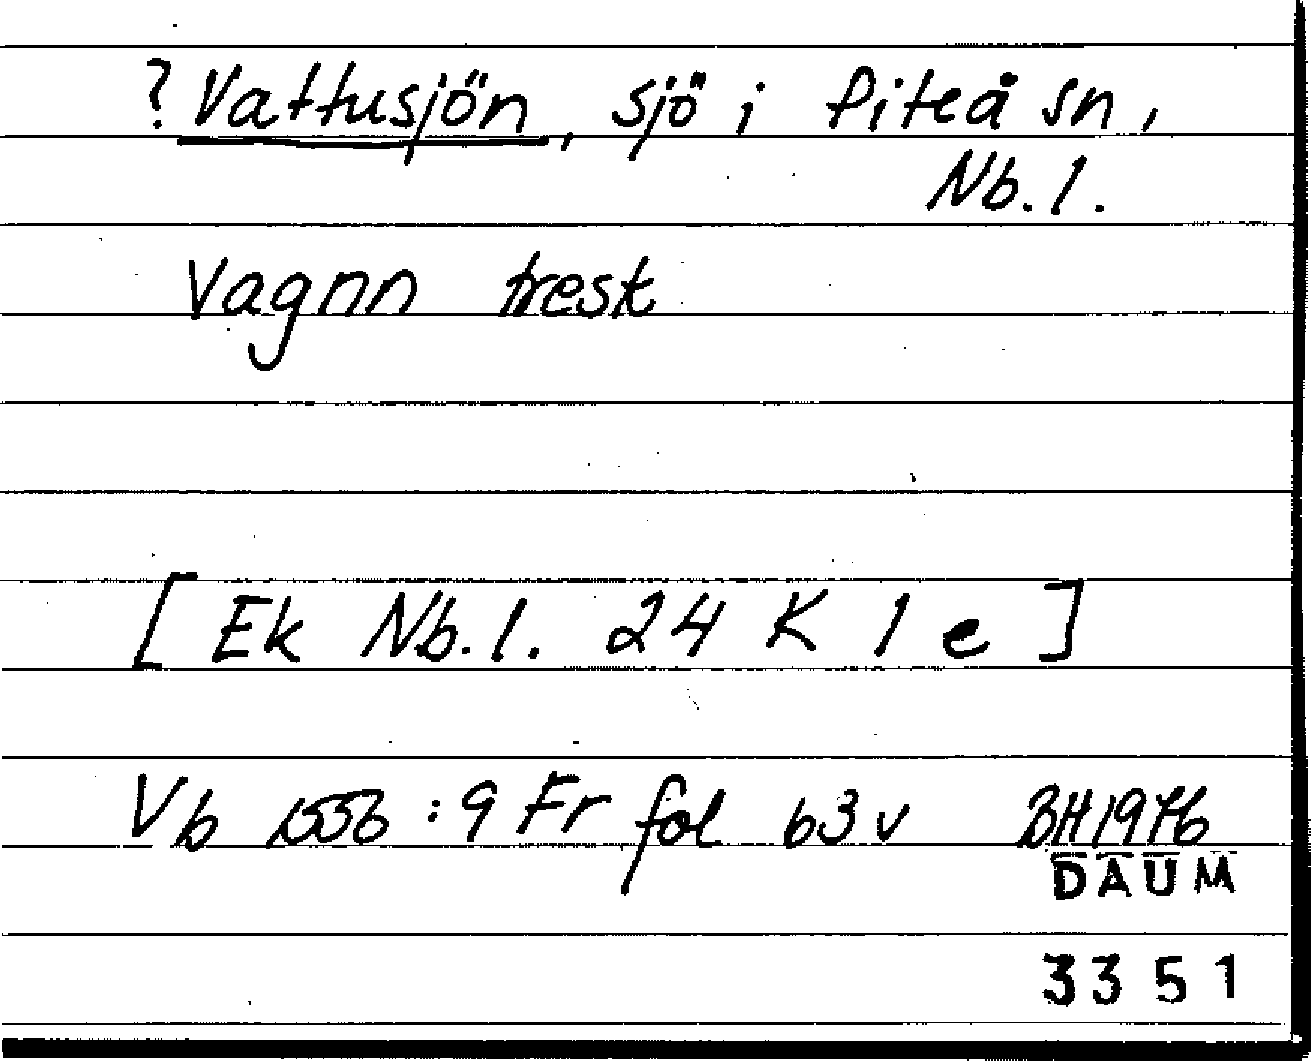 ? Vattusjön, sjö i Piteå sn,
Nb. l.
Vagnn tresk
[ Ek Nb. l. 24 K 1 e ]
Vb 1556 : 9 Fr fol 63 v BH 1976
DAUM
3351